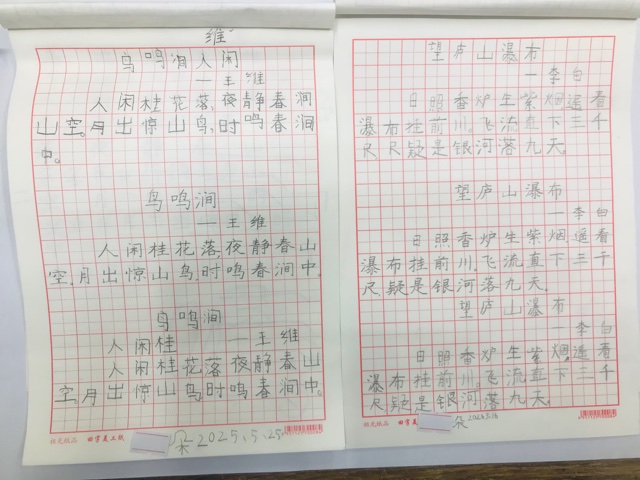 维
鸟鸣涧人闲
—王维
人闲桂花落,夜静春涧
山空。月出惊山鸟,时鸣春涧
中。
鸟鸣涧
—王维
人闲桂花落,夜静春山
空。月出惊山鸟,时鸣春涧中。
鸟鸣涧
人闲桂 —王维
人闲桂花落夜静春山
空月出惊山鸟时鸣春涧中。
田字美工纸
朵 2025.5.25
望庐山瀑布
—李白
日照香炉生紫烟,遥看
瀑布挂前川。飞流直下三千
尺尺疑是银河落九天。
望庐山瀑布
—李白
日照香炉生紫烟,遥看
瀑布挂前川。飞流直下三千
尺,疑是银河落九天。
望庐山瀑布
—李白
日照香炉生紫烟,遥看
瀑布挂前川。飞流直下三千
尺疑是银河落九天。
朵